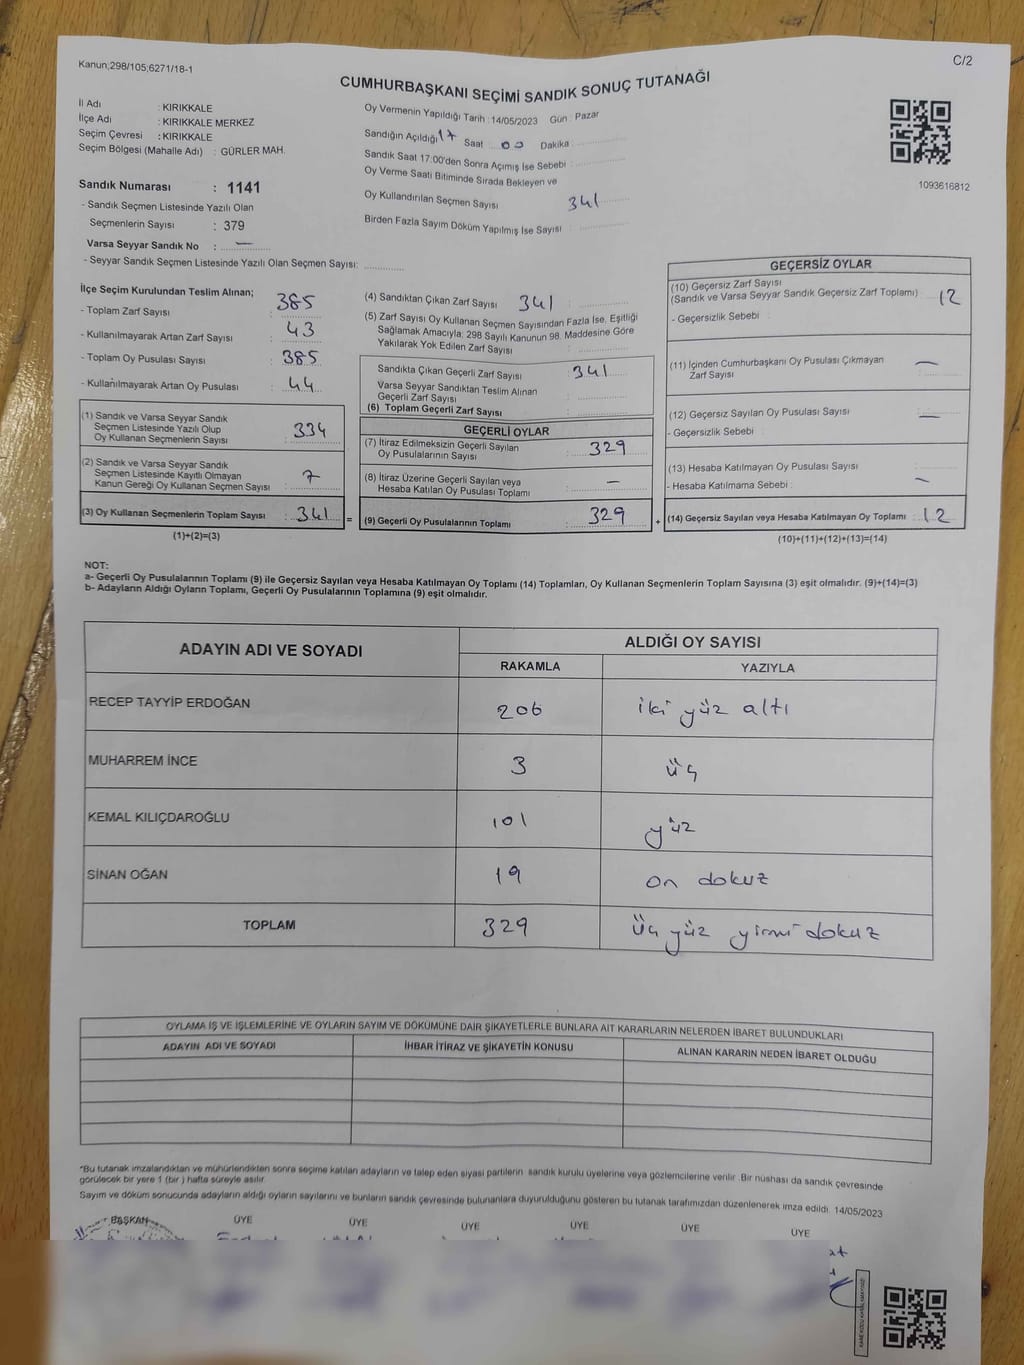 Kanun;298/105;6271/18-1
C/2
CUMHURBAŞKANI SEÇİMİ SANDIK SONUÇ TUTANAĞI
İl Adı : KIRIKKALE
İlçe Adı : KIRIKKALE MERKEZ
Seçim Çevresi : KIRIKKALE
Seçim Bölgesi (Mahalle Adı) : GÜRLER MAH.
Sandık Numarası : 1141
- Sandık Seçmen Listesinde Yazılı Olan
Seçmenlerin Sayısı : 379
Varsa Seyyar Sandık No : —
- Seyyar Sandık Seçmen Listesinde Yazılı Olan Seçmen Sayısı:
Oy Vermenin Yapıldığı Tarih : 14/05/2023 Gün : Pazar
Sandığın Açıldığı 17 Saat 00 Dakika
Sandık Saat 17:00'den Sonra Açımış İse Sebebi :
Oy Verme Saati Bitiminde Sırada Bekleyen ve
Oy Kullandırılan Seçmen Sayısı 341
Birden Fazla Sayım Döküm Yapılmış İse Sayısı :
1093616812
İlçe Seçim Kurulundan Teslim Alınan;
- Toplam Zarf Sayısı : 385
- Kullanılmayarak Artan Zarf Sayısı : 43
- Toplam Oy Pusulası Sayısı : 385
- Kullanılmayarak Artan Oy Pusulası : 44
(1) Sandık ve Varsa Seyyar Sandık
Seçmen Listesinde Yazılı Olup
Oy Kullanan Seçmenlerin Sayısı : 334
(2) Sandık ve Varsa Seyyar Sandık
Seçmen Listesinde Kayıtlı Olmayan
Kanun Gereği Oy Kullanan Seçmen Sayısı : 7
(3) Oy Kullanan Seçmenlerin Toplam Sayısı : 341 =
(1)+(2)=(3)
(4) Sandıktan Çıkan Zarf Sayısı 341
(5) Zarf Sayısı Oy Kullanan Seçmen Sayısından Fazla İse, Eşitliği
Sağlamak Amacıyla; 298 Sayılı Kanunun 98. Maddesine Göre
Yakılarak Yok Edilen Zarf Sayısı :
Sandıkta Çıkan Geçerli Zarf Sayısı : 341
Varsa Seyyar Sandıktan Teslim Alınan
Geçerli Zarf Sayısı :
(6) Toplam Geçerli Zarf Sayısı :
GEÇERLİ OYLAR
(7) İtiraz Edilmeksizin Geçerli Sayılan
Oy Pusulalarının Sayısı : 329
(8) İtiraz Üzerine Geçerli Sayılan veya
Hesaba Katılan Oy Pusulası Toplamı : —
(9) Geçerli Oy Pusulalarının Toplamı : 329 +
GEÇERSİZ OYLAR
(10) Geçersiz Zarf Sayısı :
(Sandık ve Varsa Seyyar Sandık Geçersiz Zarf Toplamı) 12
- Geçersizlik Sebebi :
(11) İçinden Cumhurbaşkanı Oy Pusulası Çıkmayan
Zarf Sayısı : —
(12) Geçersiz Sayılan Oy Pusulası Sayısı : —
- Geçersizlik Sebebi :
(13) Hesaba Katılmayan Oy Pusulası Sayısı :
- Hesaba Katılmama Sebebi : —
(14) Geçersiz Sayılan veya Hesaba Katılmayan Oy Toplamı : 12
(10)+(11)+(12)+(13)=(14)
NOT:
a- Geçerli Oy Pusulalarının Toplamı (9) ile Geçersiz Sayılan veya Hesaba Katılmayan Oy Toplamı (14) Toplamları, Oy Kullanan Seçmenlerin Toplam Sayısına (3) eşit olmalıdır. (9)+(14)=(3)
b- Adayların Aldığı Oyların Toplamı, Geçerli Oy Pusulalarının Toplamına (9) eşit olmalıdır.
ADAYIN ADI VE SOYADI
ALDIĞI OY SAYISI
RAKAMLA YAZIYLA
RECEP TAYYİP ERDOĞAN 206 iki yüz altı
MUHARREM İNCE 3 üç
KEMAL KILIÇDAROĞLU 101 yüz
SİNAN OĞAN 19 on dokuz
TOPLAM 329 üç yüz yirmi dokuz
OYLAMA İŞ VE İŞLEMLERİNE VE OYLARIN SAYIM VE DÖKÜMÜNE DAİR ŞİKAYETLERLE BUNLARA AİT KARARLARIN NELERDEN İBARET BULUNDUKLARI
ADAYIN ADI VE SOYADI İHBAR İTİRAZ VE ŞİKAYETİN KONUSU ALINAN KARARIN NEDEN İBARET OLDUĞU
*Bu tutanak imzalandıktan ve mühürlendikten sonra seçime katılan adayların ve talep eden siyasi partilerin sandık kurulu üyelerine veya gözlemcilerine verilir. Bir nüshası da sandık çevresinde
görülecek bir yere 1 (bir) hafta süreyle asılır.
Sayım ve döküm sonucunda adayların aldığı oyların sayılarını ve bunların sandık çevresinde bulunanlara duyurulduğunu gösteren bu tutanak tarafımızdan düzenlenerek imza edildi. 14/05/2023
BAŞKAN ÜYE ÜYE ÜYE ÜYE ÜYE ÜYE